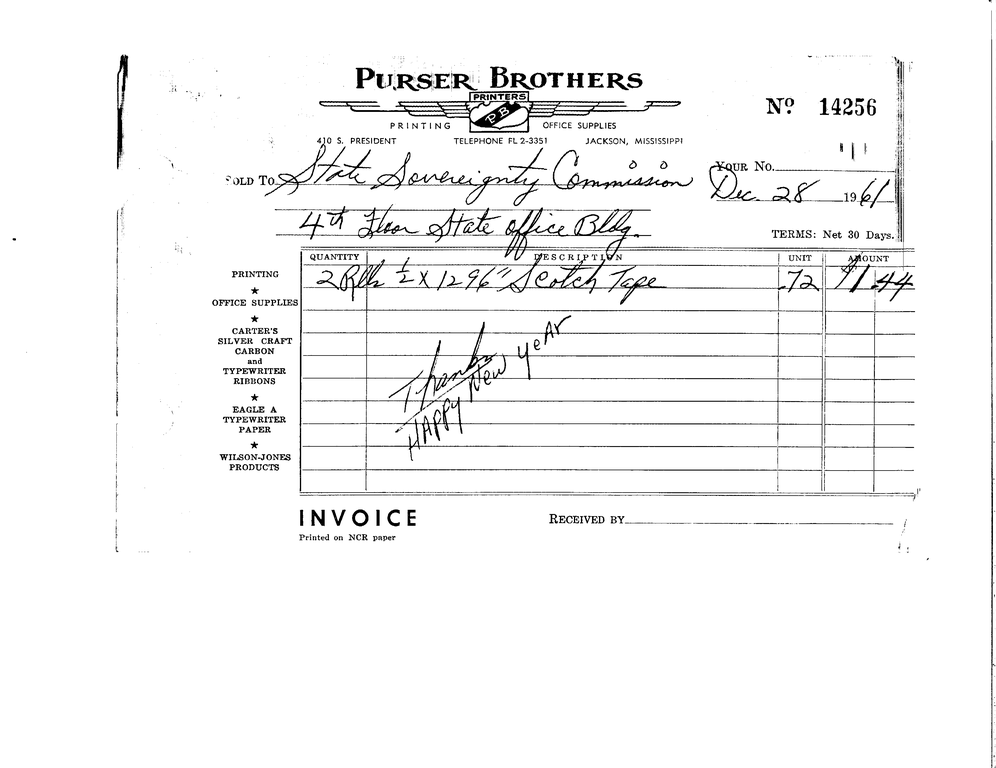 PURSER BROTHERS
PRINTERS
P.B.
Nº 14256
PRINTING OFFICE SUPPLIES
410 S. PRESIDENT TELEPHONE FL 2-3351 JACKSON, MISSISSIPPI
YOUR NO.
SOLD TO State Sovereignty Commission
Dec. 28 1961
4th Floor State office Bldg.
TERMS: Net 30 Days.
QUANTITY DESCRIPTION UNIT AMOUNT
2 Rolls ½ X 1296" Scotch Tape .72 $1.44
PRINTING
★
OFFICE SUPPLIES
★
CARTER'S
SILVER CRAFT
CARBON
and
TYPEWRITER
RIBBONS
★
EAGLE A
TYPEWRITER
PAPER
★
WILSON-JONES
PRODUCTS
Thanks
HAPPY New YeAr
INVOICE
Printed on NCR paper
RECEIVED BY